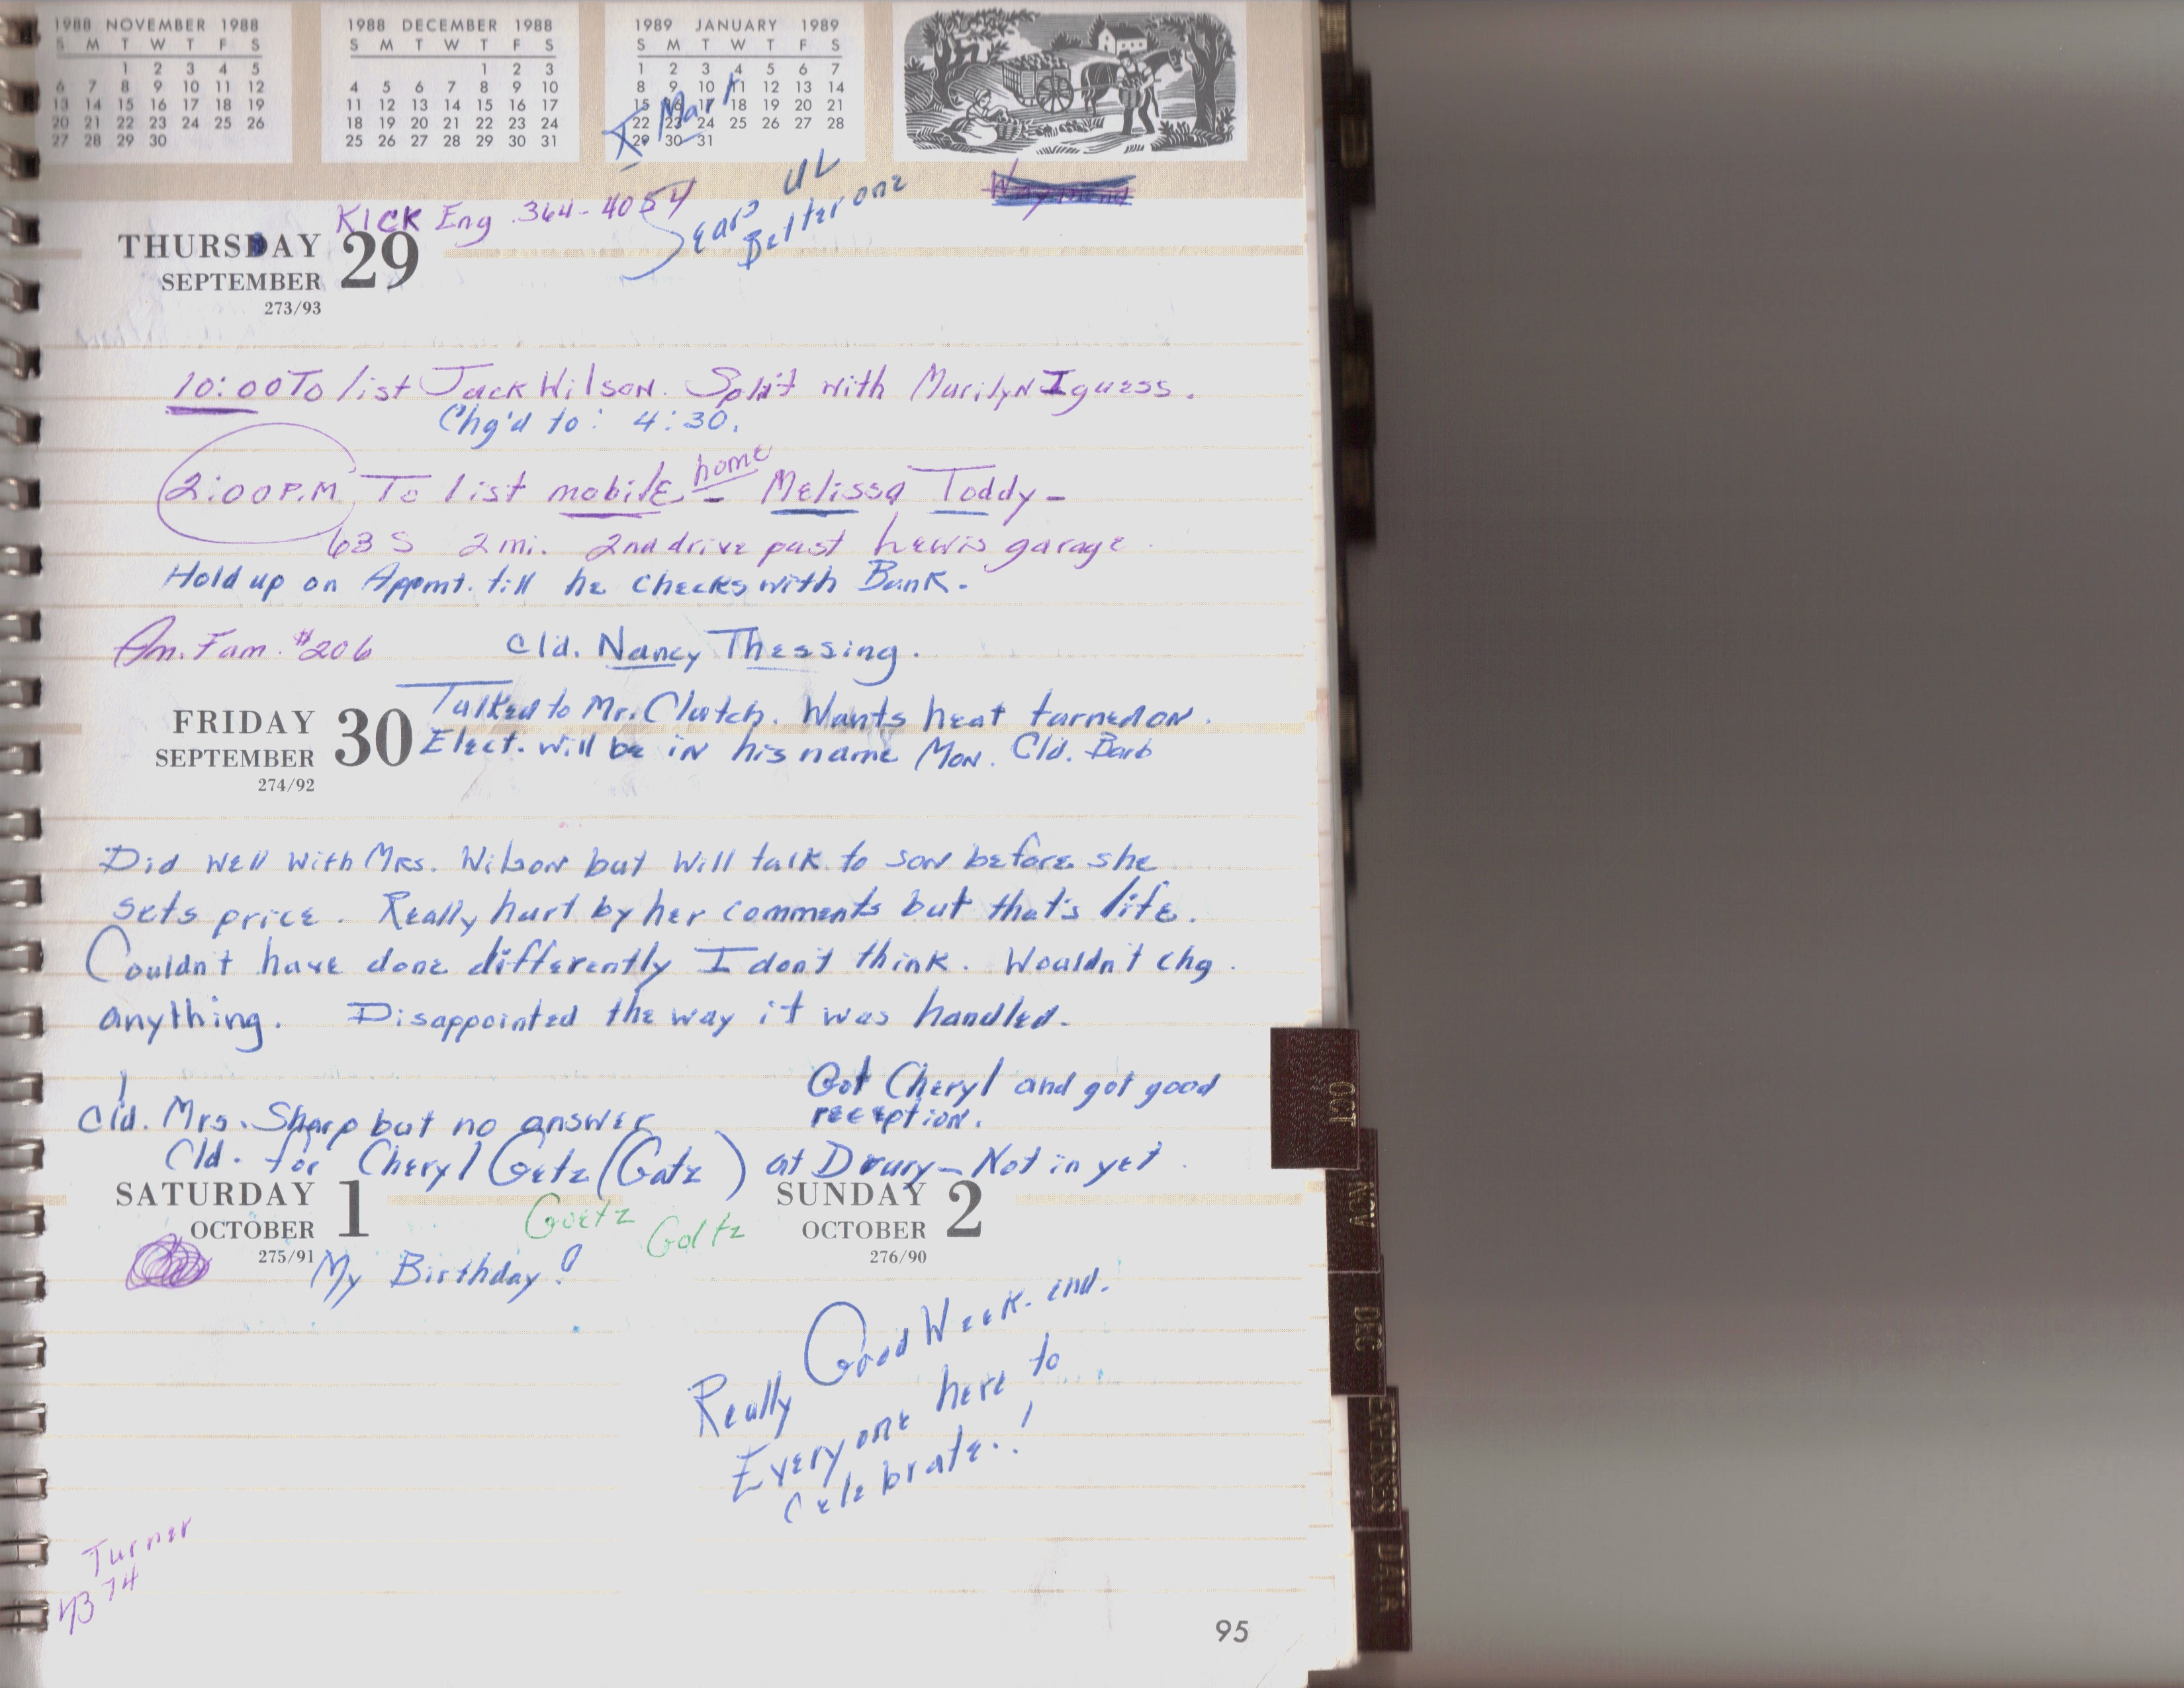 1988 NOVEMBER 1988
S M T W T F S
1 2 3 4 5
6 7 8 9 10 11 12
13 14 15 16 17 18 19
20 21 22 23 24 25 26
27 28 29 30
1988 DECEMBER 1988
S M T W T F S
1 2 3
4 5 6 7 8 9 10
11 12 13 14 15 16 17
18 19 20 21 22 23 24
25 26 27 28 29 30 31
1989 JANUARY 1989
S M T W T F S
1 2 3 4 5 6 7
8 9 10 11 12 13 14
15 16 17 18 19 20 21
22 23 24 25 26 27 28
29 30 31
K Mart
UL
Sears Better one
KICK Eng. 364-4054
THURSDAY 29
SEPTEMBER
273/93
10:00 To list Jack Wilson. Split with Marilyn I guess.
Chg'd to: 4:30.
2:00 P.M. To list mobile home - Melissa Toddy -
63 S 2 mi. 2nd drive past Lewis garage.
Hold up on Appmt. till he checks with Bank.
Am. Fam. $206
Cld. Nancy Thessing.
FRIDAY 30
SEPTEMBER
274/92
Talked to Mr. Clutch. Wants heat turned on.
Elect. will be in his name Mon. Cld. Barb
Did well with Mrs. Wilson but will talk to son before she
sets price. Really hurt by her comments but that's life.
Couldn't have done differently I don't think. Wouldn't chg.
anything. Disappointed the way it was handled.
Got Cheryl and got good
reception.
Cld. Mrs. Sharp but no answer
Cld. for Cheryl Getz (Gatz) at Drury - Not in yet.
SATURDAY 1
OCTOBER
275/91
Goetz Goltz
My Birthday!
SUNDAY 2
OCTOBER
276/90
Really Good Week-end.
Everyone here to
Celebrate..!
Turner
4374
95
OCT
NOV
DEC
EXPENSES
DATA